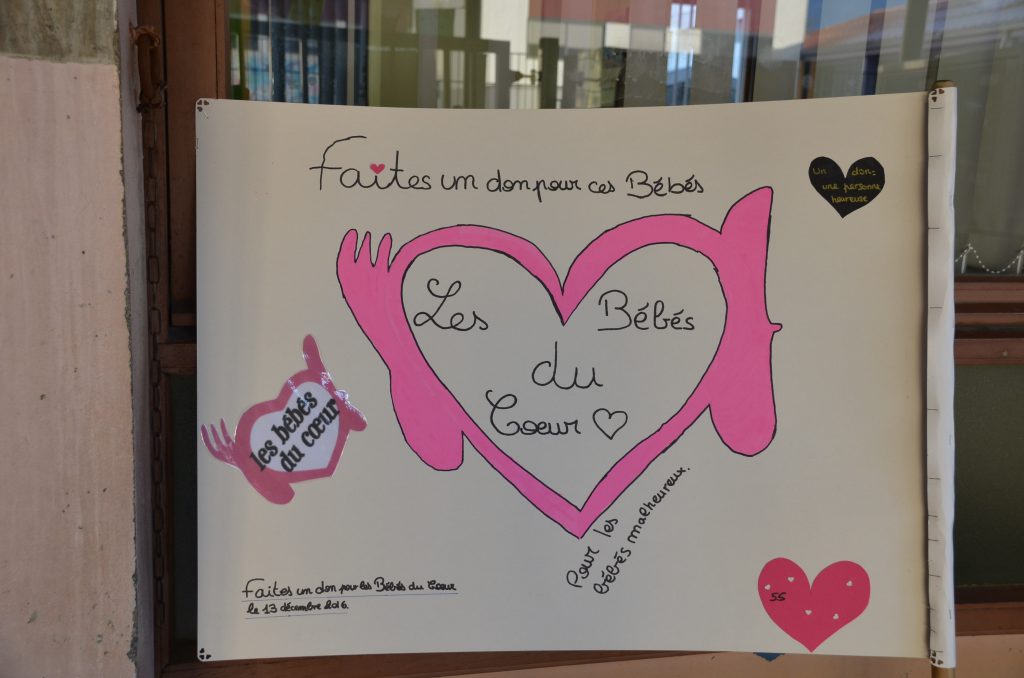 Faites un don pour ces Bébés
Un don:
une personne
heureuse
Les Bébés
du
Coeur
les bébés
du cœur
Pour les
bébés malheureux.
Faites un don pour les Bébés du Coeur
le 13 décembre 2016.
5S